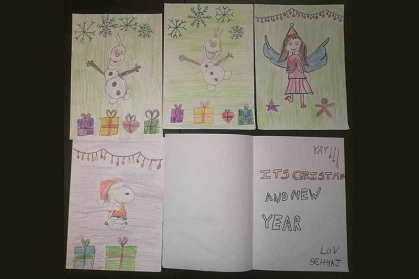 YAY!!!
ITS CRISTMA
AND NEW
YEAR
LUV
SEHHAJ